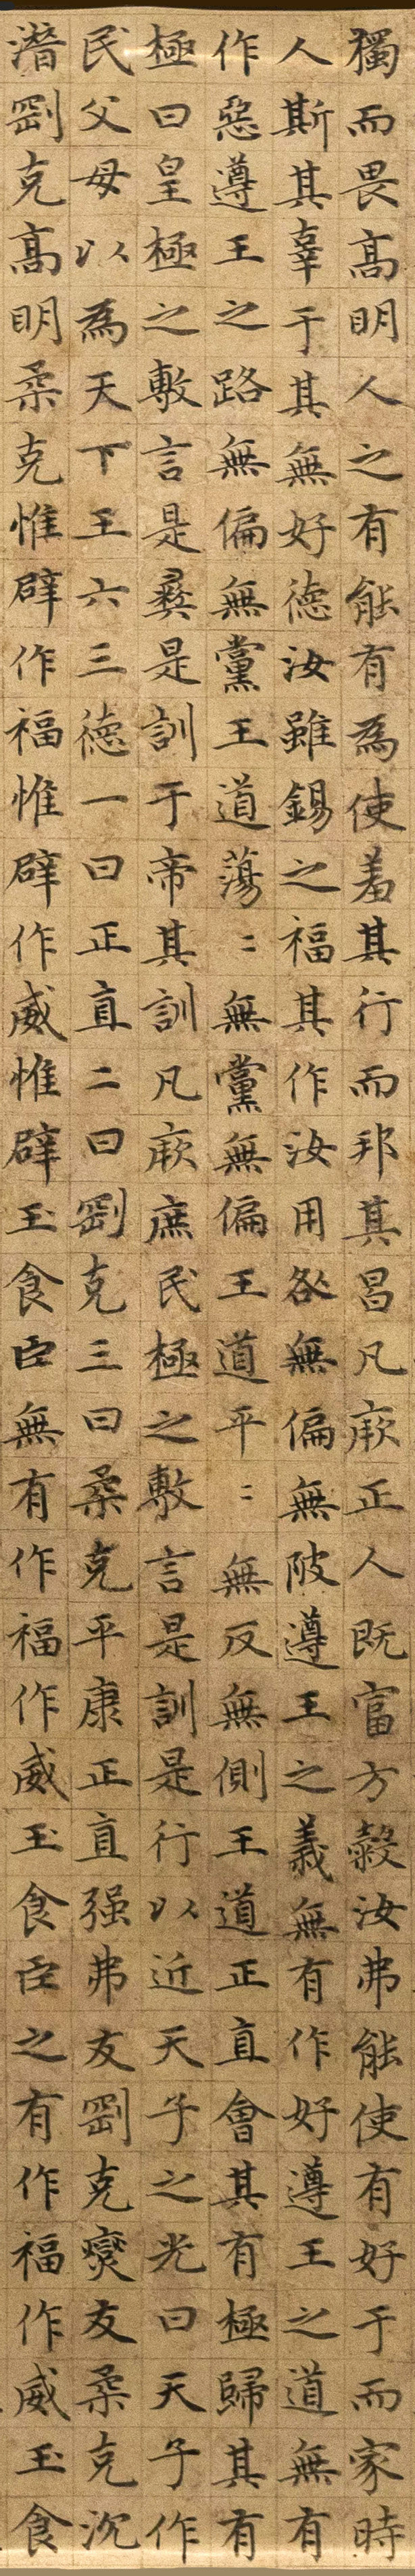 獨而畏高明人之有能有為使羞其行而邦其昌凡厥正人既富方穀汝弗能使有好于而家時
人斯其辜于其無好德汝雖錫之福其作汝用咎無偏無陂遵王之義無有作好遵王之道無有
作惡遵王之路無偏無黨王道蕩〻無黨無偏王道平〻無反無側王道正直會其有極歸其有
極曰皇極之敷言是彝是訓于帝其訓凡厥庶民極之敷言是訓是行以近天子之光曰天子作
民父母以為天下王六三德一曰正直二曰剛克三曰柔克平康正直强弗友剛克燮友柔克沉
潛剛克高明柔克惟辟作福惟辟作威惟辟玉食臣無有作福作威玉食臣之有作福作威玉食